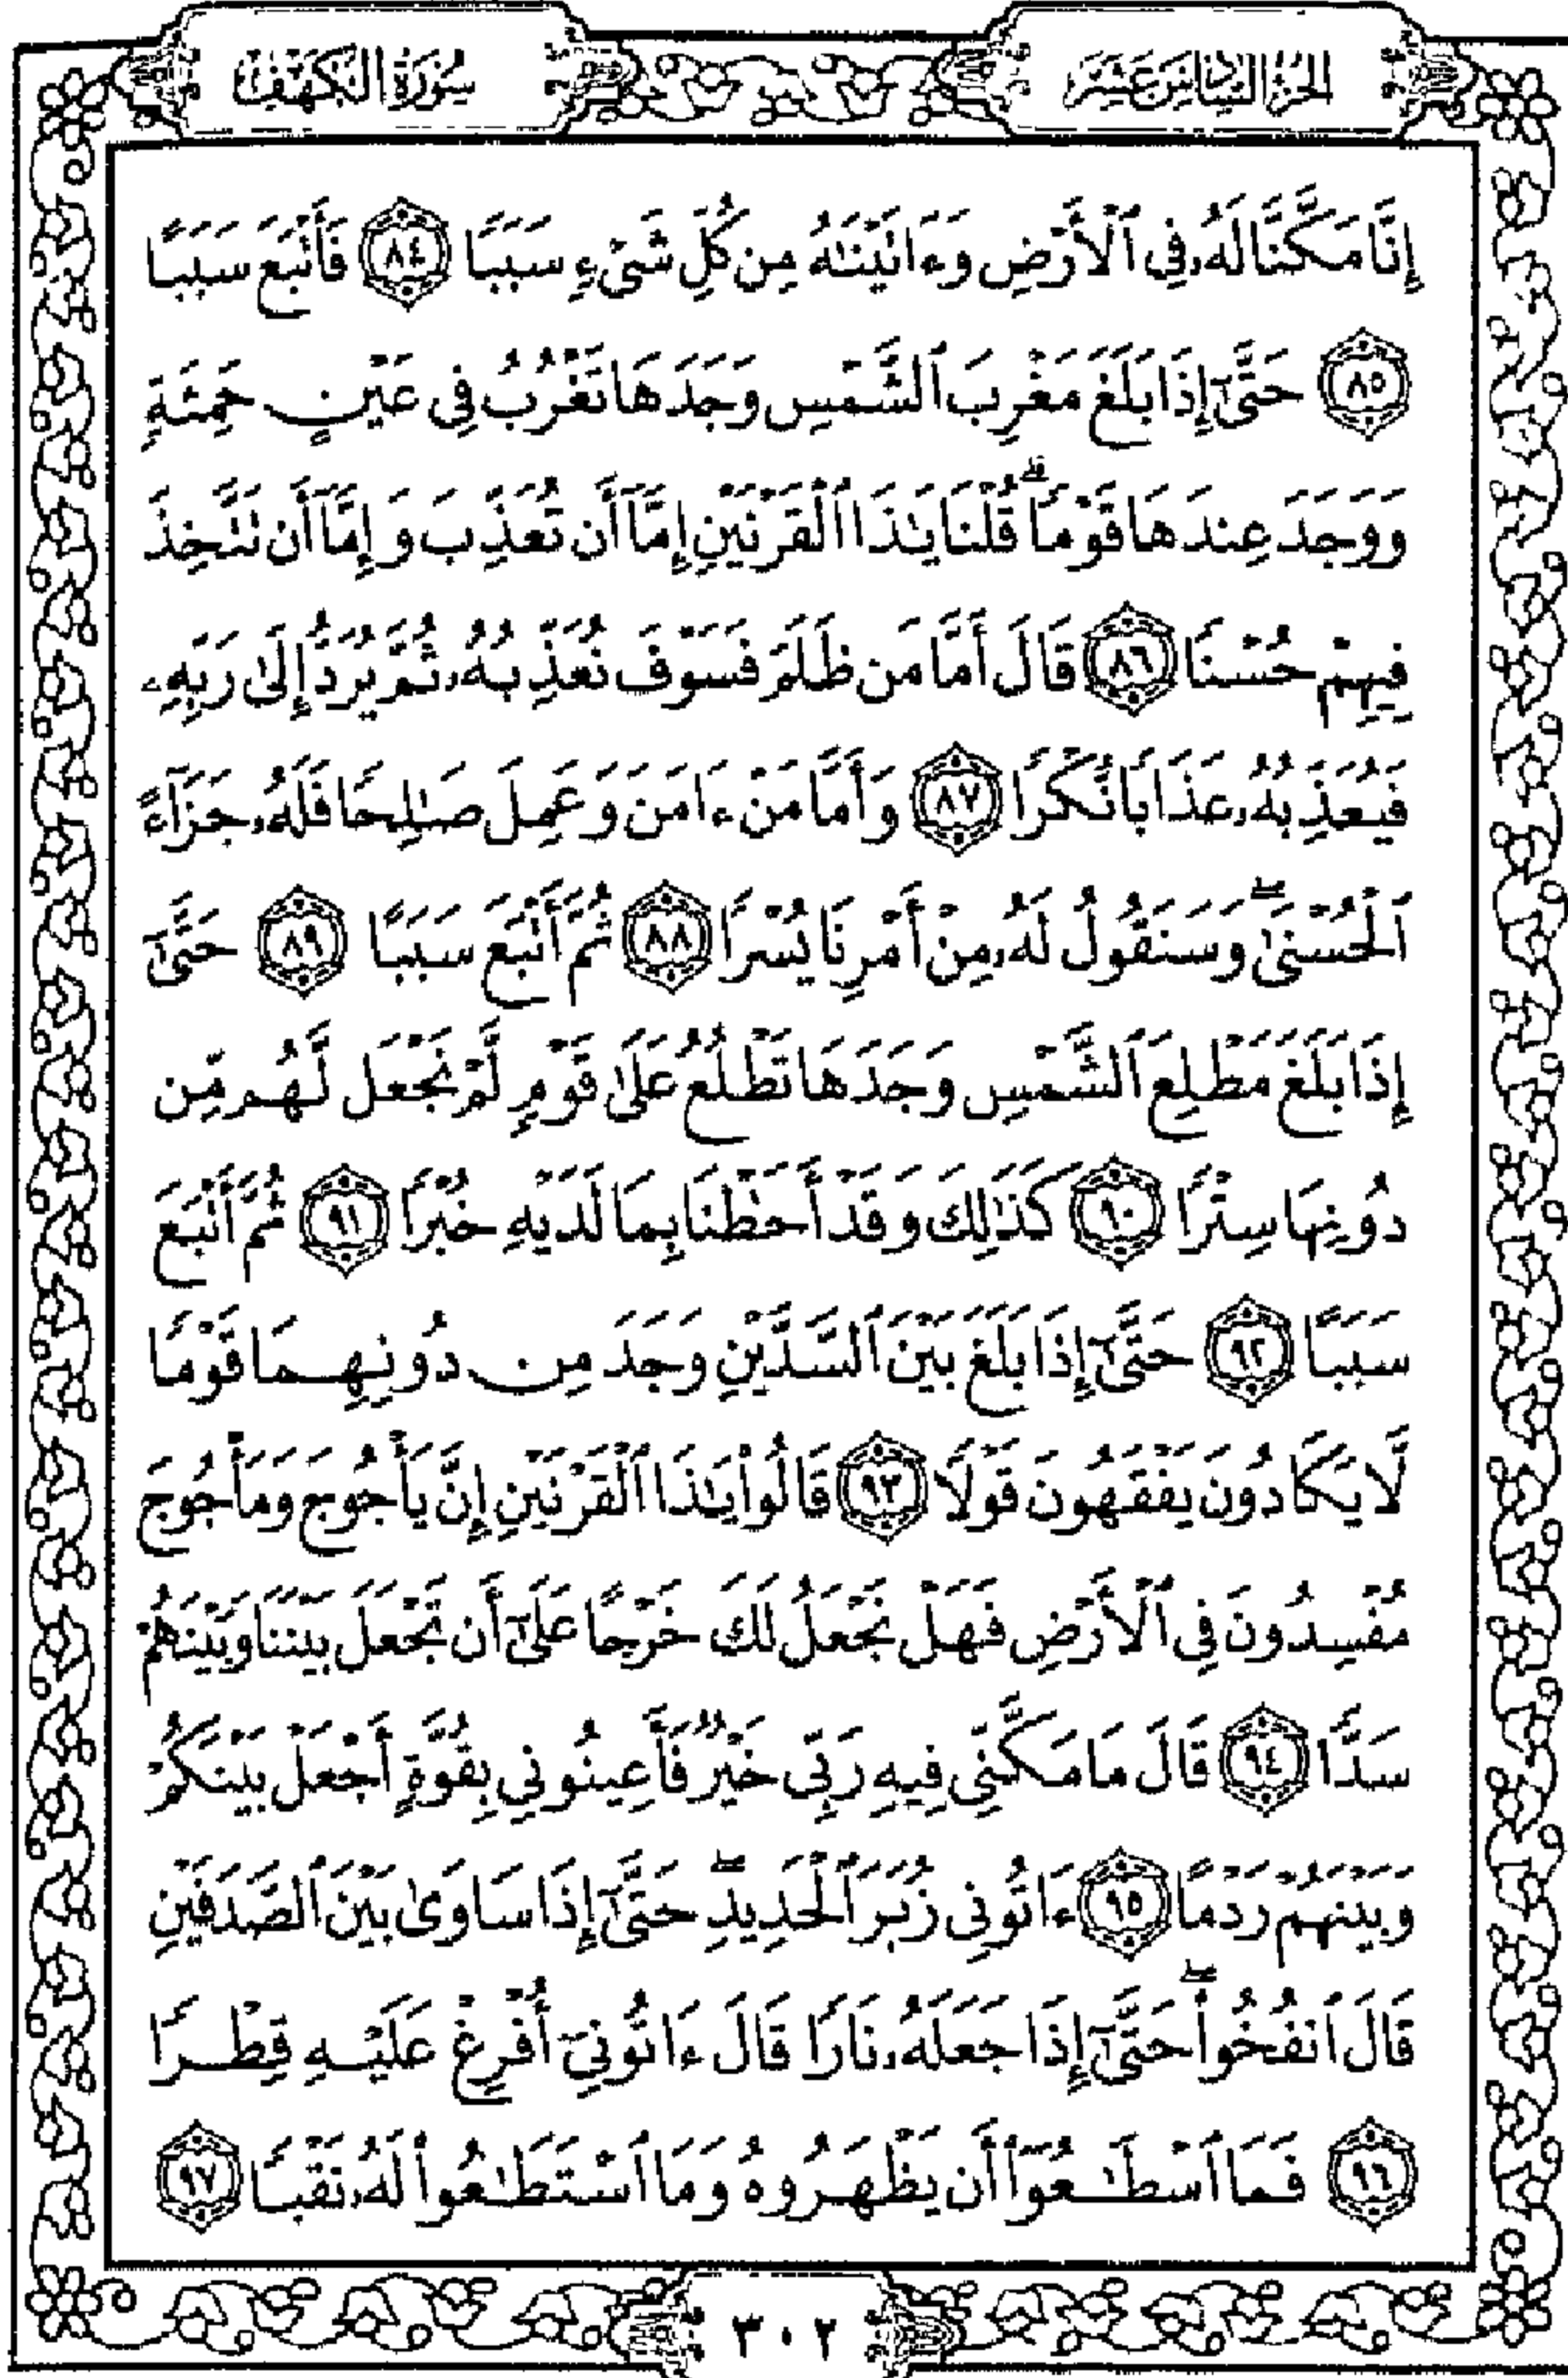 الجزء السادس عشر
سورة الكهف
إِنَّا مَكَّنَّا لَهُۥ فِي ٱلْأَرْضِ وَءَاتَيْنَٰهُ مِن كُلِّ شَىْءٍ سَبَبًا ﴿٨٤﴾ فَأَتْبَعَ سَبَبًا
﴿٨٥﴾ حَتَّىٰٓ إِذَا بَلَغَ مَغْرِبَ ٱلشَّمْسِ وَجَدَهَا تَغْرُبُ فِى عَيْنٍ حَمِئَةٍ
وَوَجَدَ عِندَهَا قَوْمًا ۗ قُلْنَا يَٰذَا ٱلْقَرْنَيْنِ إِمَّآ أَن تُعَذِّبَ وَإِمَّآ أَن تَتَّخِذَ
فِيهِمْ حُسْنًا ﴿٨٦﴾ قَالَ أَمَّا مَن ظَلَمَ فَسَوْفَ نُعَذِّبُهُۥ ثُمَّ يُرَدُّ إِلَىٰ رَبِّهِۦ
فَيُعَذِّبُهُۥ عَذَابًا نُّكْرًا ﴿٨٧﴾ وَأَمَّا مَنْ ءَامَنَ وَعَمِلَ صَٰلِحًا فَلَهُۥ جَزَآءً
ٱلْحُسْنَىٰ ۖ وَسَنَقُولُ لَهُۥ مِنْ أَمْرِنَا يُسْرًا ﴿٨٨﴾ ثُمَّ أَتْبَعَ سَبَبًا ﴿٨٩﴾ حَتَّىٰٓ
إِذَا بَلَغَ مَطْلِعَ ٱلشَّمْسِ وَجَدَهَا تَطْلُعُ عَلَىٰ قَوْمٍ لَّمْ نَجْعَل لَّهُم مِّن
دُونِهَا سِتْرًا ﴿٩٠﴾ كَذَٰلِكَ وَقَدْ أَحَطْنَا بِمَا لَدَيْهِ خُبْرًا ﴿٩١﴾ ثُمَّ أَتْبَعَ
سَبَبًا ﴿٩٢﴾ حَتَّىٰٓ إِذَا بَلَغَ بَيْنَ ٱلسَّدَّيْنِ وَجَدَ مِن دُونِهِمَا قَوْمًا
لَّا يَكَادُونَ يَفْقَهُونَ قَوْلًا ﴿٩٣﴾ قَالُوا۟ يَٰذَا ٱلْقَرْنَيْنِ إِنَّ يَأْجُوجَ وَمَأْجُوجَ
مُفْسِدُونَ فِى ٱلْأَرْضِ فَهَلْ نَجْعَلُ لَكَ خَرْجًا عَلَىٰٓ أَن تَجْعَلَ بَيْنَنَا وَبَيْنَهُمْ
سَدًّا ﴿٩٤﴾ قَالَ مَا مَكَّنِّى فِيهِ رَبِّى خَيْرٌ فَأَعِينُونِى بِقُوَّةٍ أَجْعَلْ بَيْنَكُمْ
وَبَيْنَهُمْ رَدْمًا ﴿٩٥﴾ ءَاتُونِى زُبَرَ ٱلْحَدِيدِ ۖ حَتَّىٰٓ إِذَا سَاوَىٰ بَيْنَ ٱلصَّدَفَيْنِ
قَالَ ٱنفُخُوا۟ ۖ حَتَّىٰٓ إِذَا جَعَلَهُۥ نَارًا قَالَ ءَاتُونِىٓ أُفْرِغْ عَلَيْهِ قِطْرًا
﴿٩٦﴾ فَمَا ٱسْطَٰعُوٓا۟ أَن يَظْهَرُوهُ وَمَا ٱسْتَطَٰعُوا۟ لَهُۥ نَقْبًا ﴿٩٧﴾
٣٠٢